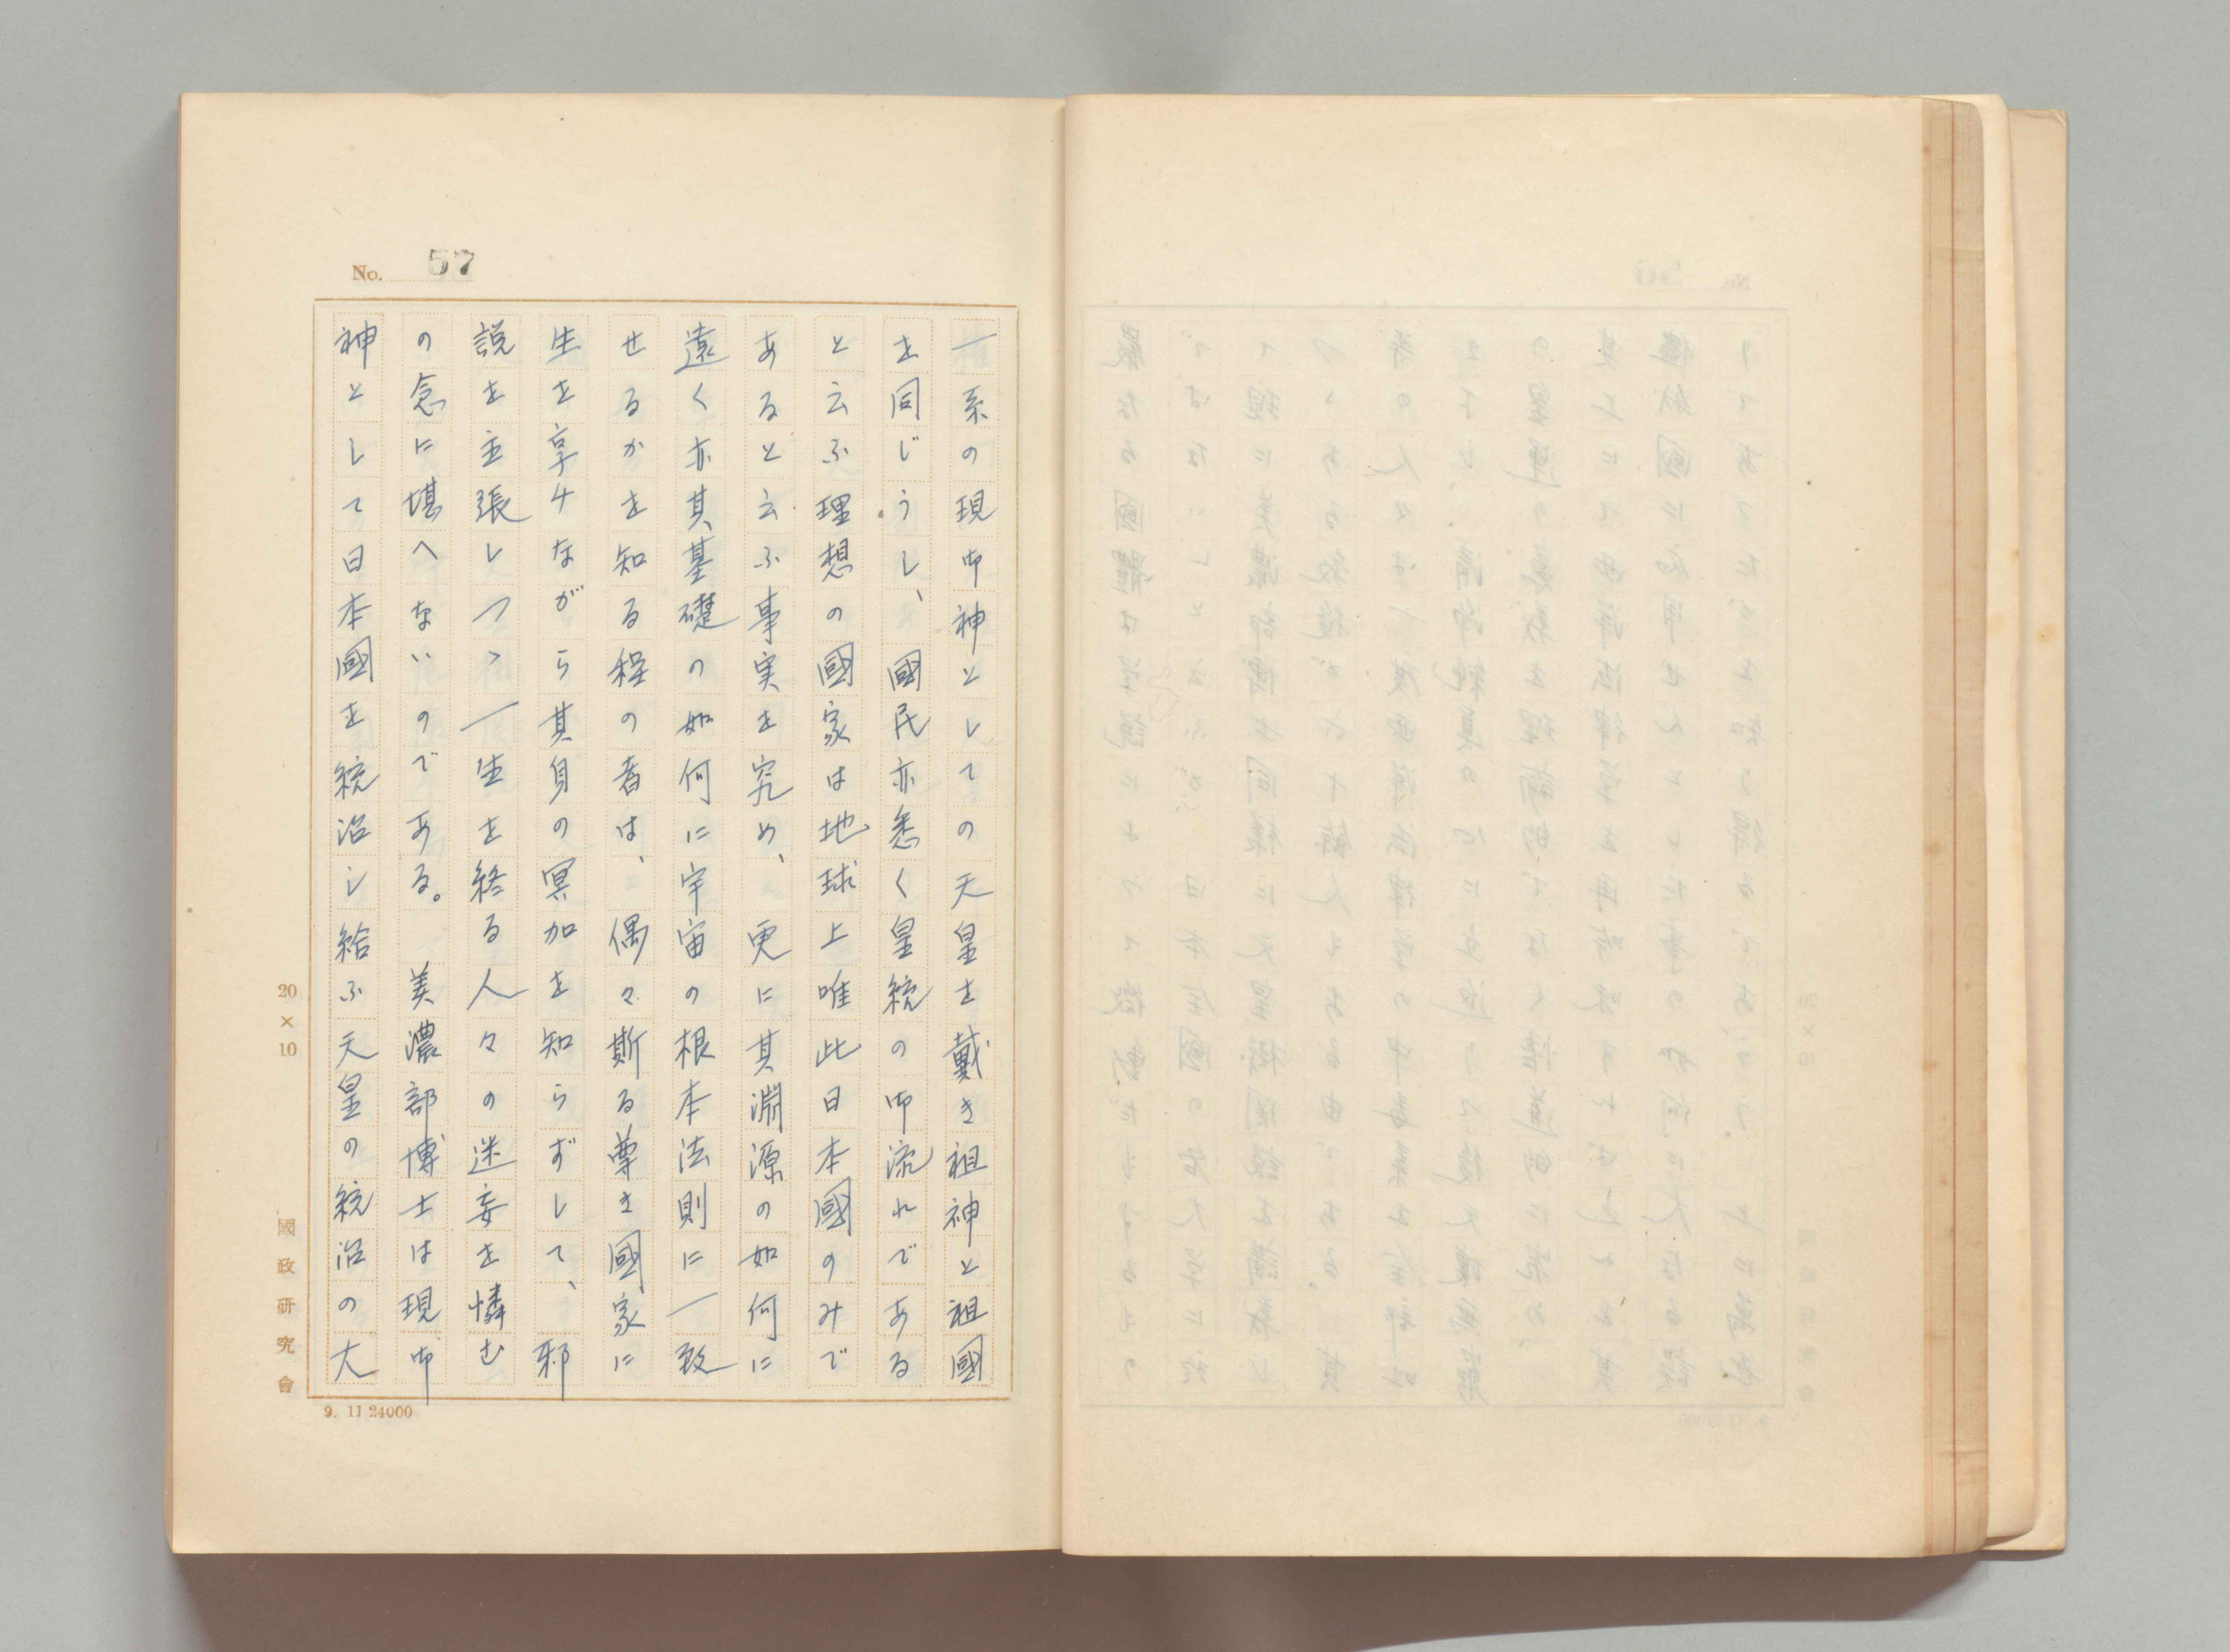 No. 57
一系の現御神としての天皇を戴き祖神と祖國
を同じうし、國民亦悉く皇統の御流れである
と云ふ理想の國家は地球上唯此日本國のみで
あると云ふ事実を究め、更に其淵源の如何に
遠く亦其基礎の如何に宇宙の根本法則に一致
せるかを知る程の者は、偶々斯る尊き國家に
生を享けながら其身の冥加を知らずして、邪
説を主張しつゝ一生を終る人々の迷妄を憐む
の念に堪へないのである。美濃部博士は現御
神として日本國を統治し給ふ天皇の統治の大
20×10
國政研究會
9. 11 24000